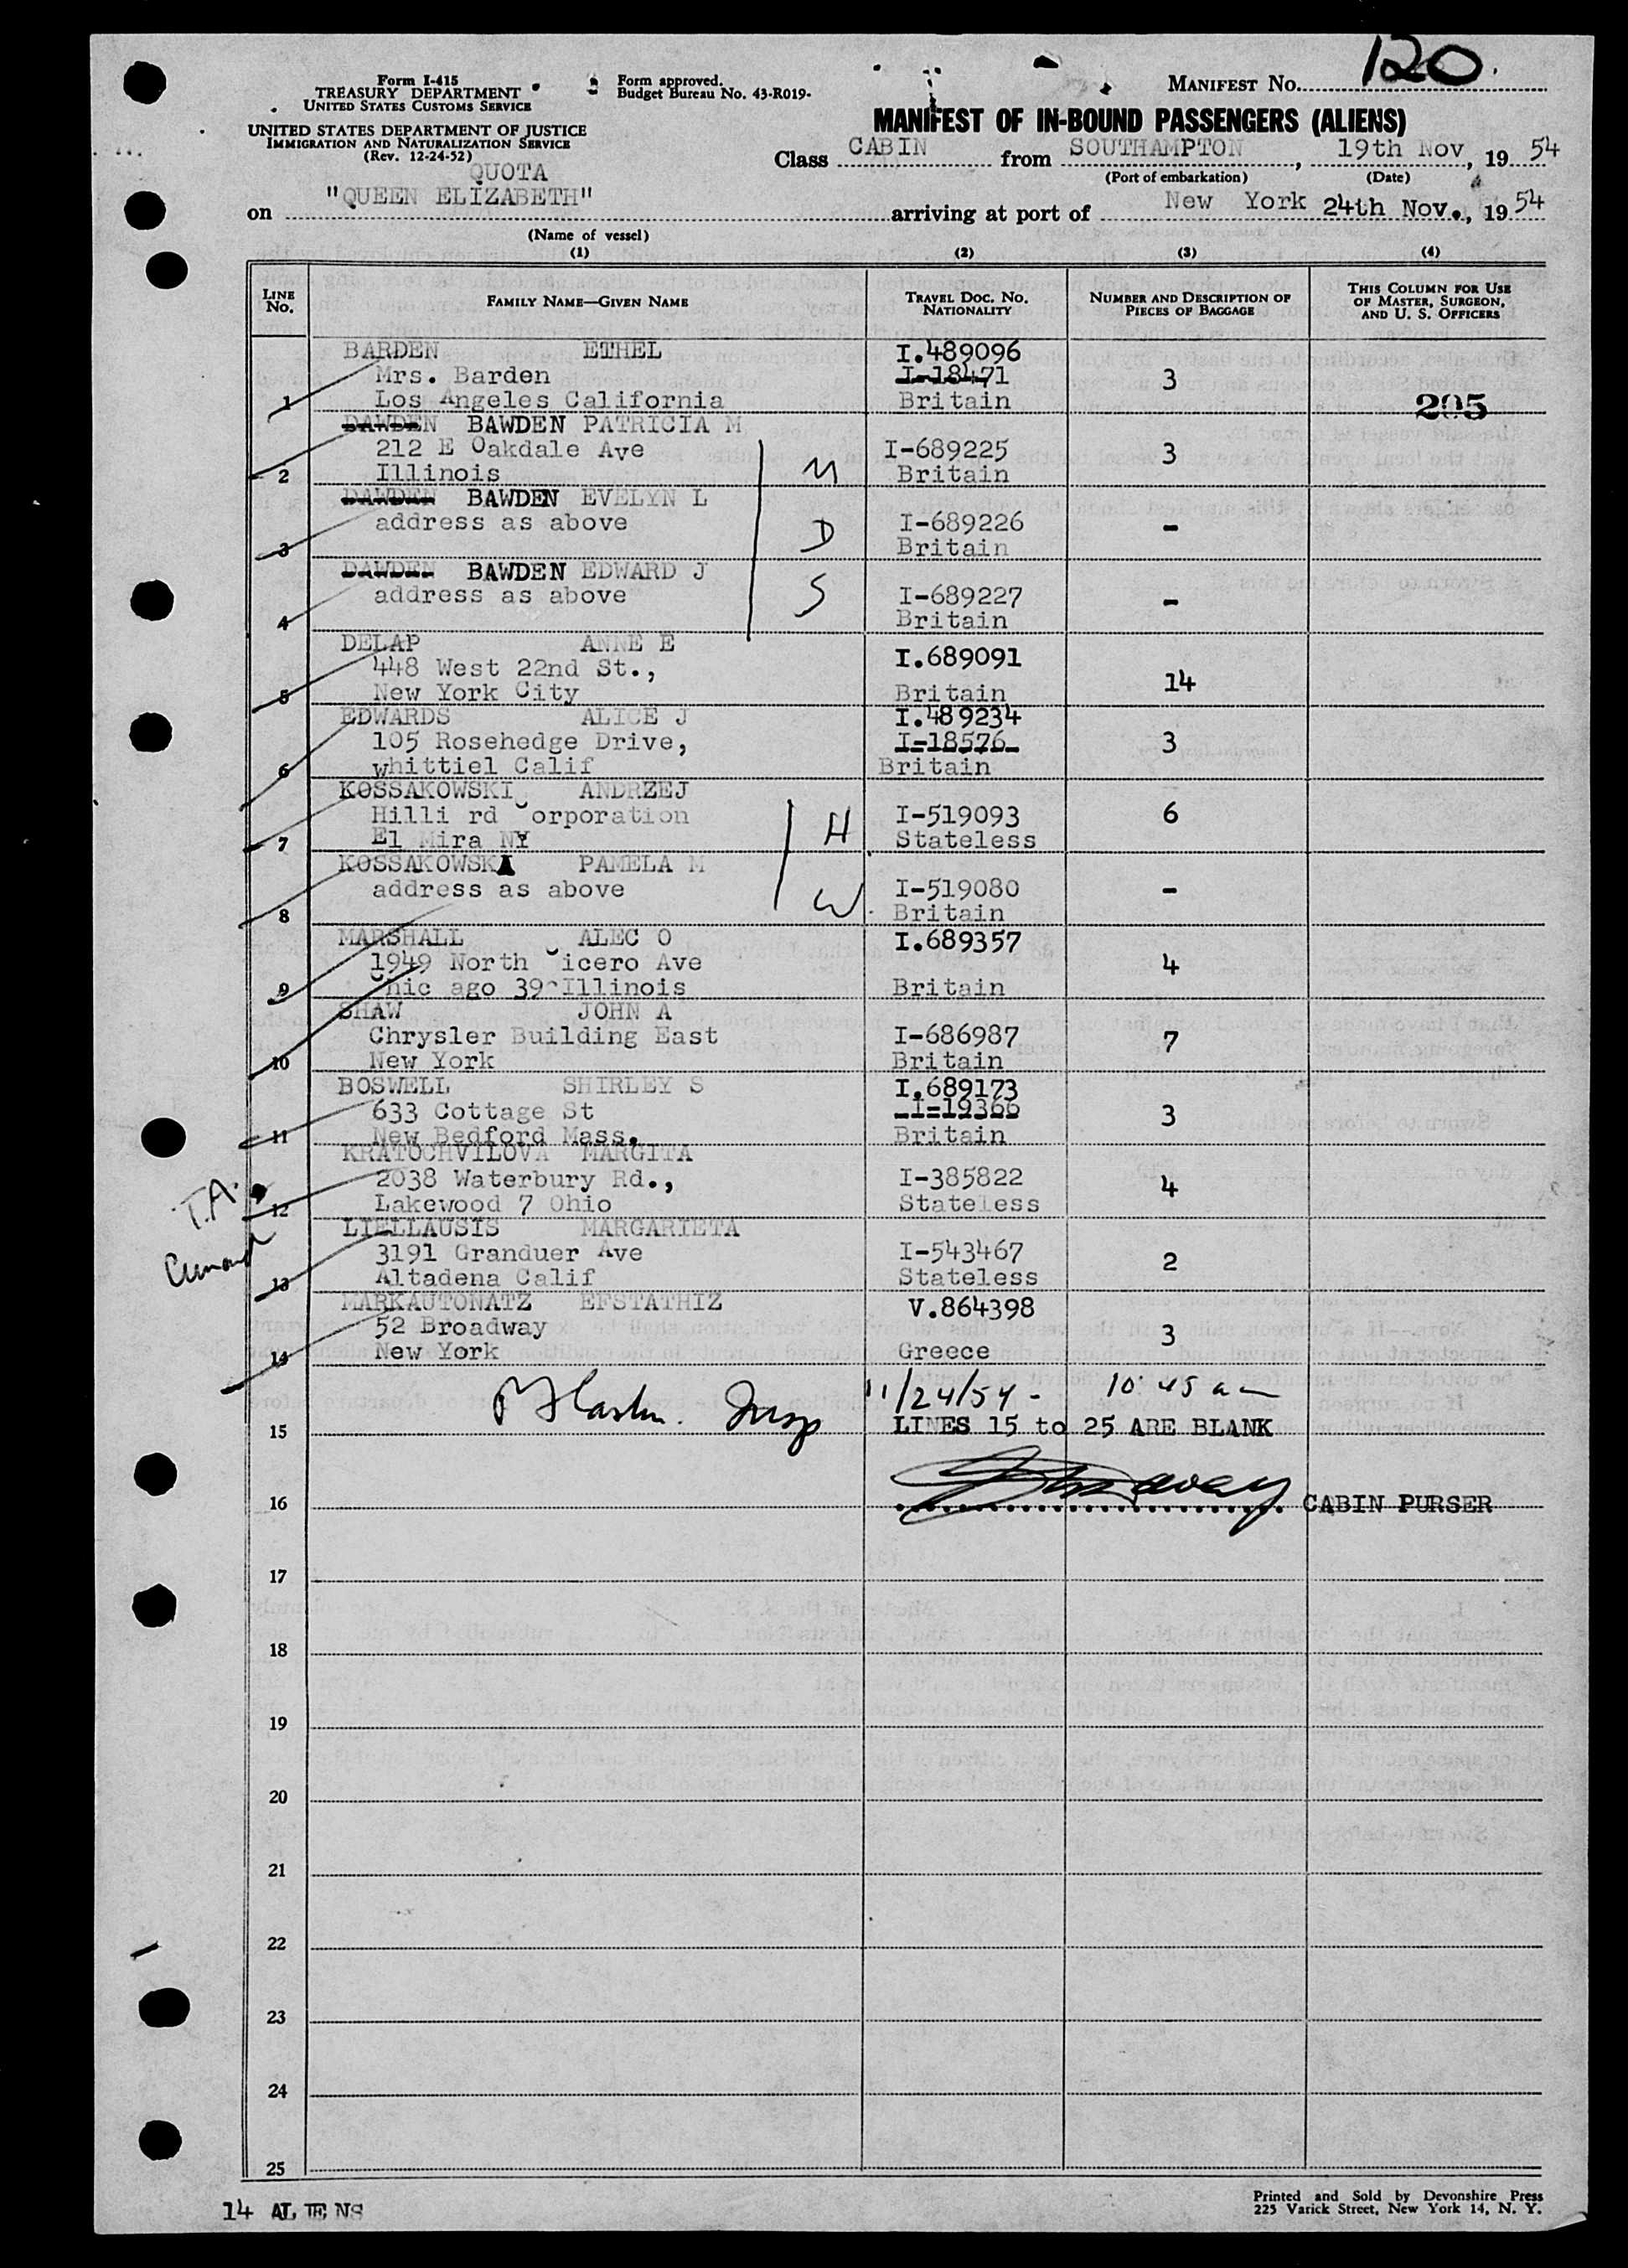 Form I-415
TREASURY DEPARTMENT
UNITED STATES CUSTOMS SERVICE
UNITED STATES DEPARTMENT OF JUSTICE
IMMIGRATION AND NATURALIZATION SERVICE
(Rev. 12-24-52)
Form approved.
Budget Bureau No. 43-R019-
MANIFEST No. 120.
MANIFEST OF IN-BOUND PASSENGERS (ALIENS)
Class CABIN from SOUTHAMPTON, 19th Nov, 19 54
(Port of embarkation) (Date)
QUOTA
on "QUEEN ELIZABETH" arriving at port of New York 24th Nov., 19 54
(Name of vessel)
(1) (2) (3) (4)
LINE No. FAMILY NAME—GIVEN NAME TRAVEL DOC. No. NATIONALITY NUMBER AND DESCRIPTION OF PIECES OF BAGGAGE THIS COLUMN FOR USE OF MASTER, SURGEON, AND U. S. OFFICERS
BARDEN ETHEL I.489096
Mrs. Barden I-18471 3
1 Los Angeles California Britain 205
DAWDEN BAWDEN PATRICIA M
212 E Oakdale Ave I-689225 3
2 Illinois M Britain
DAWDEN BAWDEN EVELYN L
address as above I-689226 -
3 D Britain
DAWDEN BAWDEN EDWARD J
address as above S I-689227 -
4 Britain
DELAP ANNE E I.689091
448 West 22nd St.,
5 New York City Britain 14
EDWARDS ALICE J I.489234
105 Rosehedge Drive, I-18576 3
6 whittiel Calif Britain
KOSSAKOWSKI ANDRZEJ
Hilli rd Corporation I-519093 6
7 El Mira NY H Stateless
KOSSAKOWSKI PAMELA M
address as above I-519080 -
8 W. Britain
MARSHALL ALEC O I.689357
1949 North Cicero Ave 4
9 Chic ago 39 Illinois Britain
SHAW JOHN A
Chrysler Building East I-686987 7
10 New York Britain
BOSWELL SHIRLEY S I.689173
633 Cottage St I-19366 3
11 New Bedford Mass. Britain
KRATOCHVILOVA MARGITA
T.A. 2038 Waterbury Rd., I-385822 4
12 Lakewood 7 Ohio Stateless
Cunard
LIELLAUSIS MARGARIETA
3191 Granduer Ave I-543467 2
13 Altadena Calif Stateless
MARKAUTONATZ EFSTATHIZ V.864398
52 Broadway 3
14 New York Greece
Insp 11/24/54 - 10 45 am
15 LINES 15 to 25 ARE BLANK
16 CABIN PURSER
17
18
19
20
21
22
23
24
25
14 ALIENS
Printed and Sold by Devonshire Press
225 Varick Street, New York 14, N. Y.